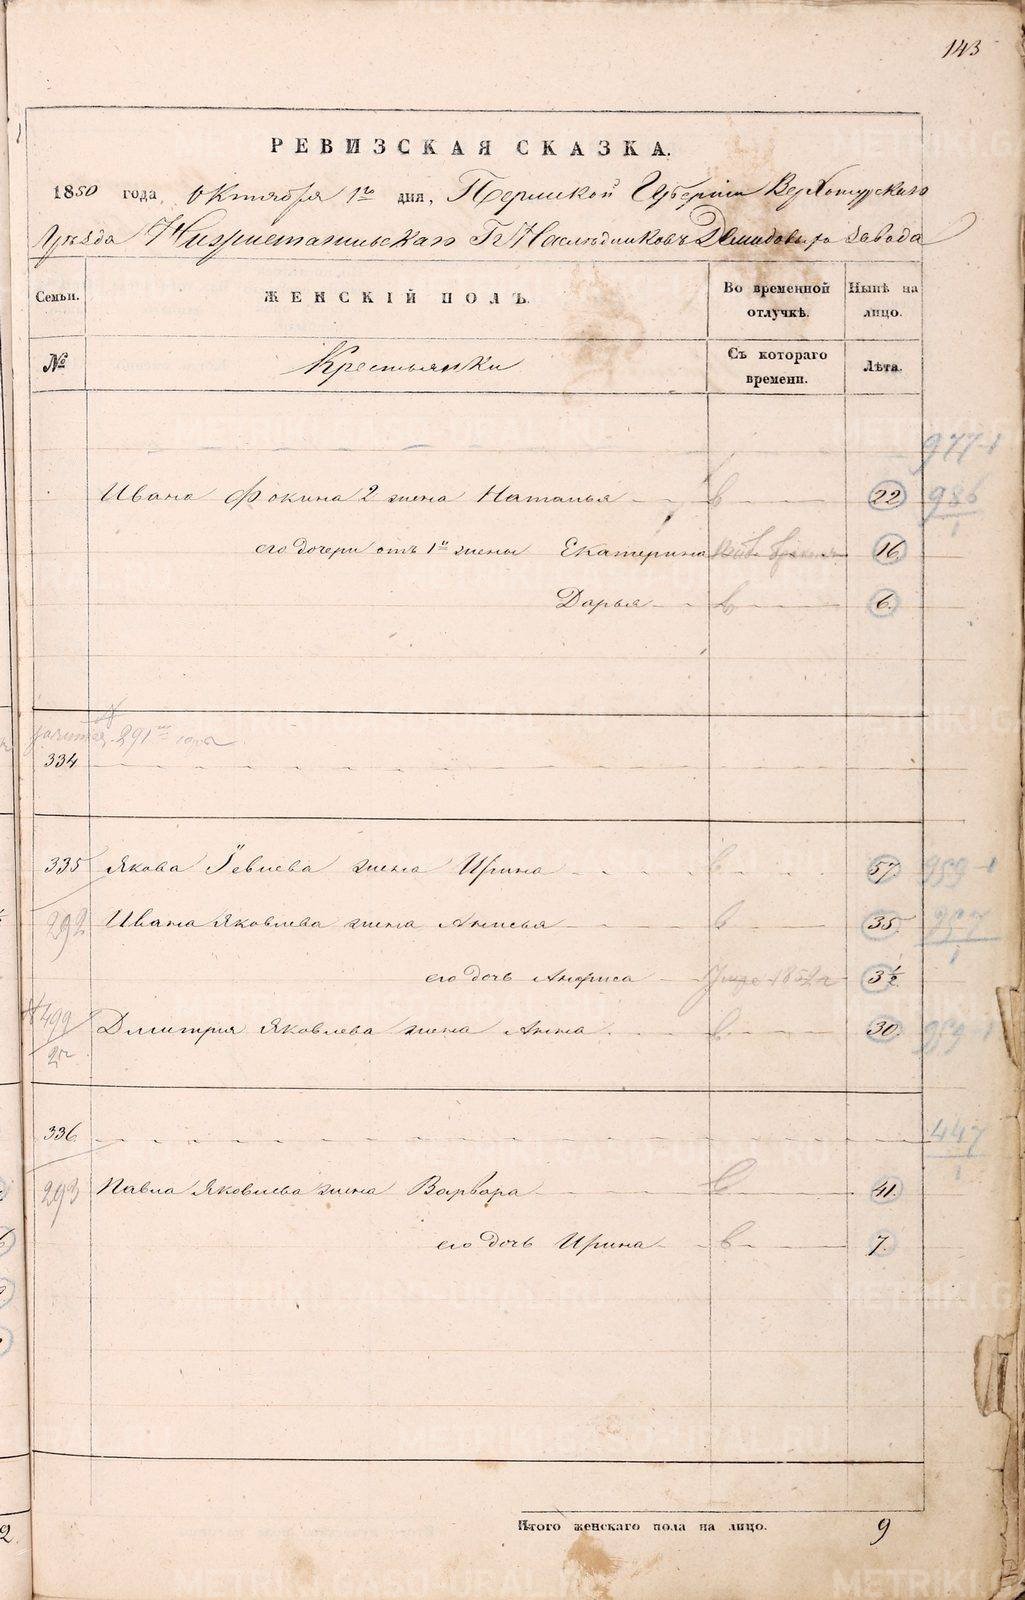 143
РЕВИЗСКАЯ СКАЗКА.
1850 года, Октября 1го дня, Пермской Губернии Верхотурскаго
Уѣзда Гг Наслѣдниковъ Демидовыхъ завода
Семьи. ЖЕНСКІЙ ПОЛЪ. Во временной отлучкѣ. Нынѣ на лицо.
№ Крестьянки Съ котораго времени. Лѣта.
977-1
Ивана Фокина 2 жена Наталья 22 986
1
его дочери отъ 1й жены Екатерина 16
Дарья 6.
291
334
335 Якова Іевлева жена Ирина 57 959-1
292 Ивана Яковлева жена Анисья 35 957
1
его дочь Анфиса 1852 3½
499 Дмитрія Яковлева жена Анна 30. 959-1
336 447
1
293 Павла Яковлева жена Варвара 41.
его дочь Ирина 7.
Итого женскаго пола на лицо. 9
METRIKI.GASO-URAL.RU